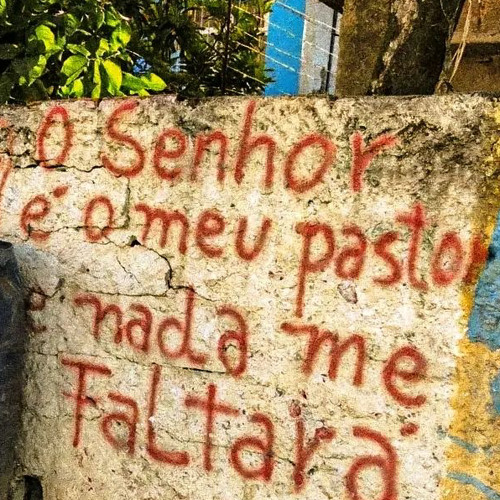 O Senhor
é o meu pastor
e nada me
FaLtará